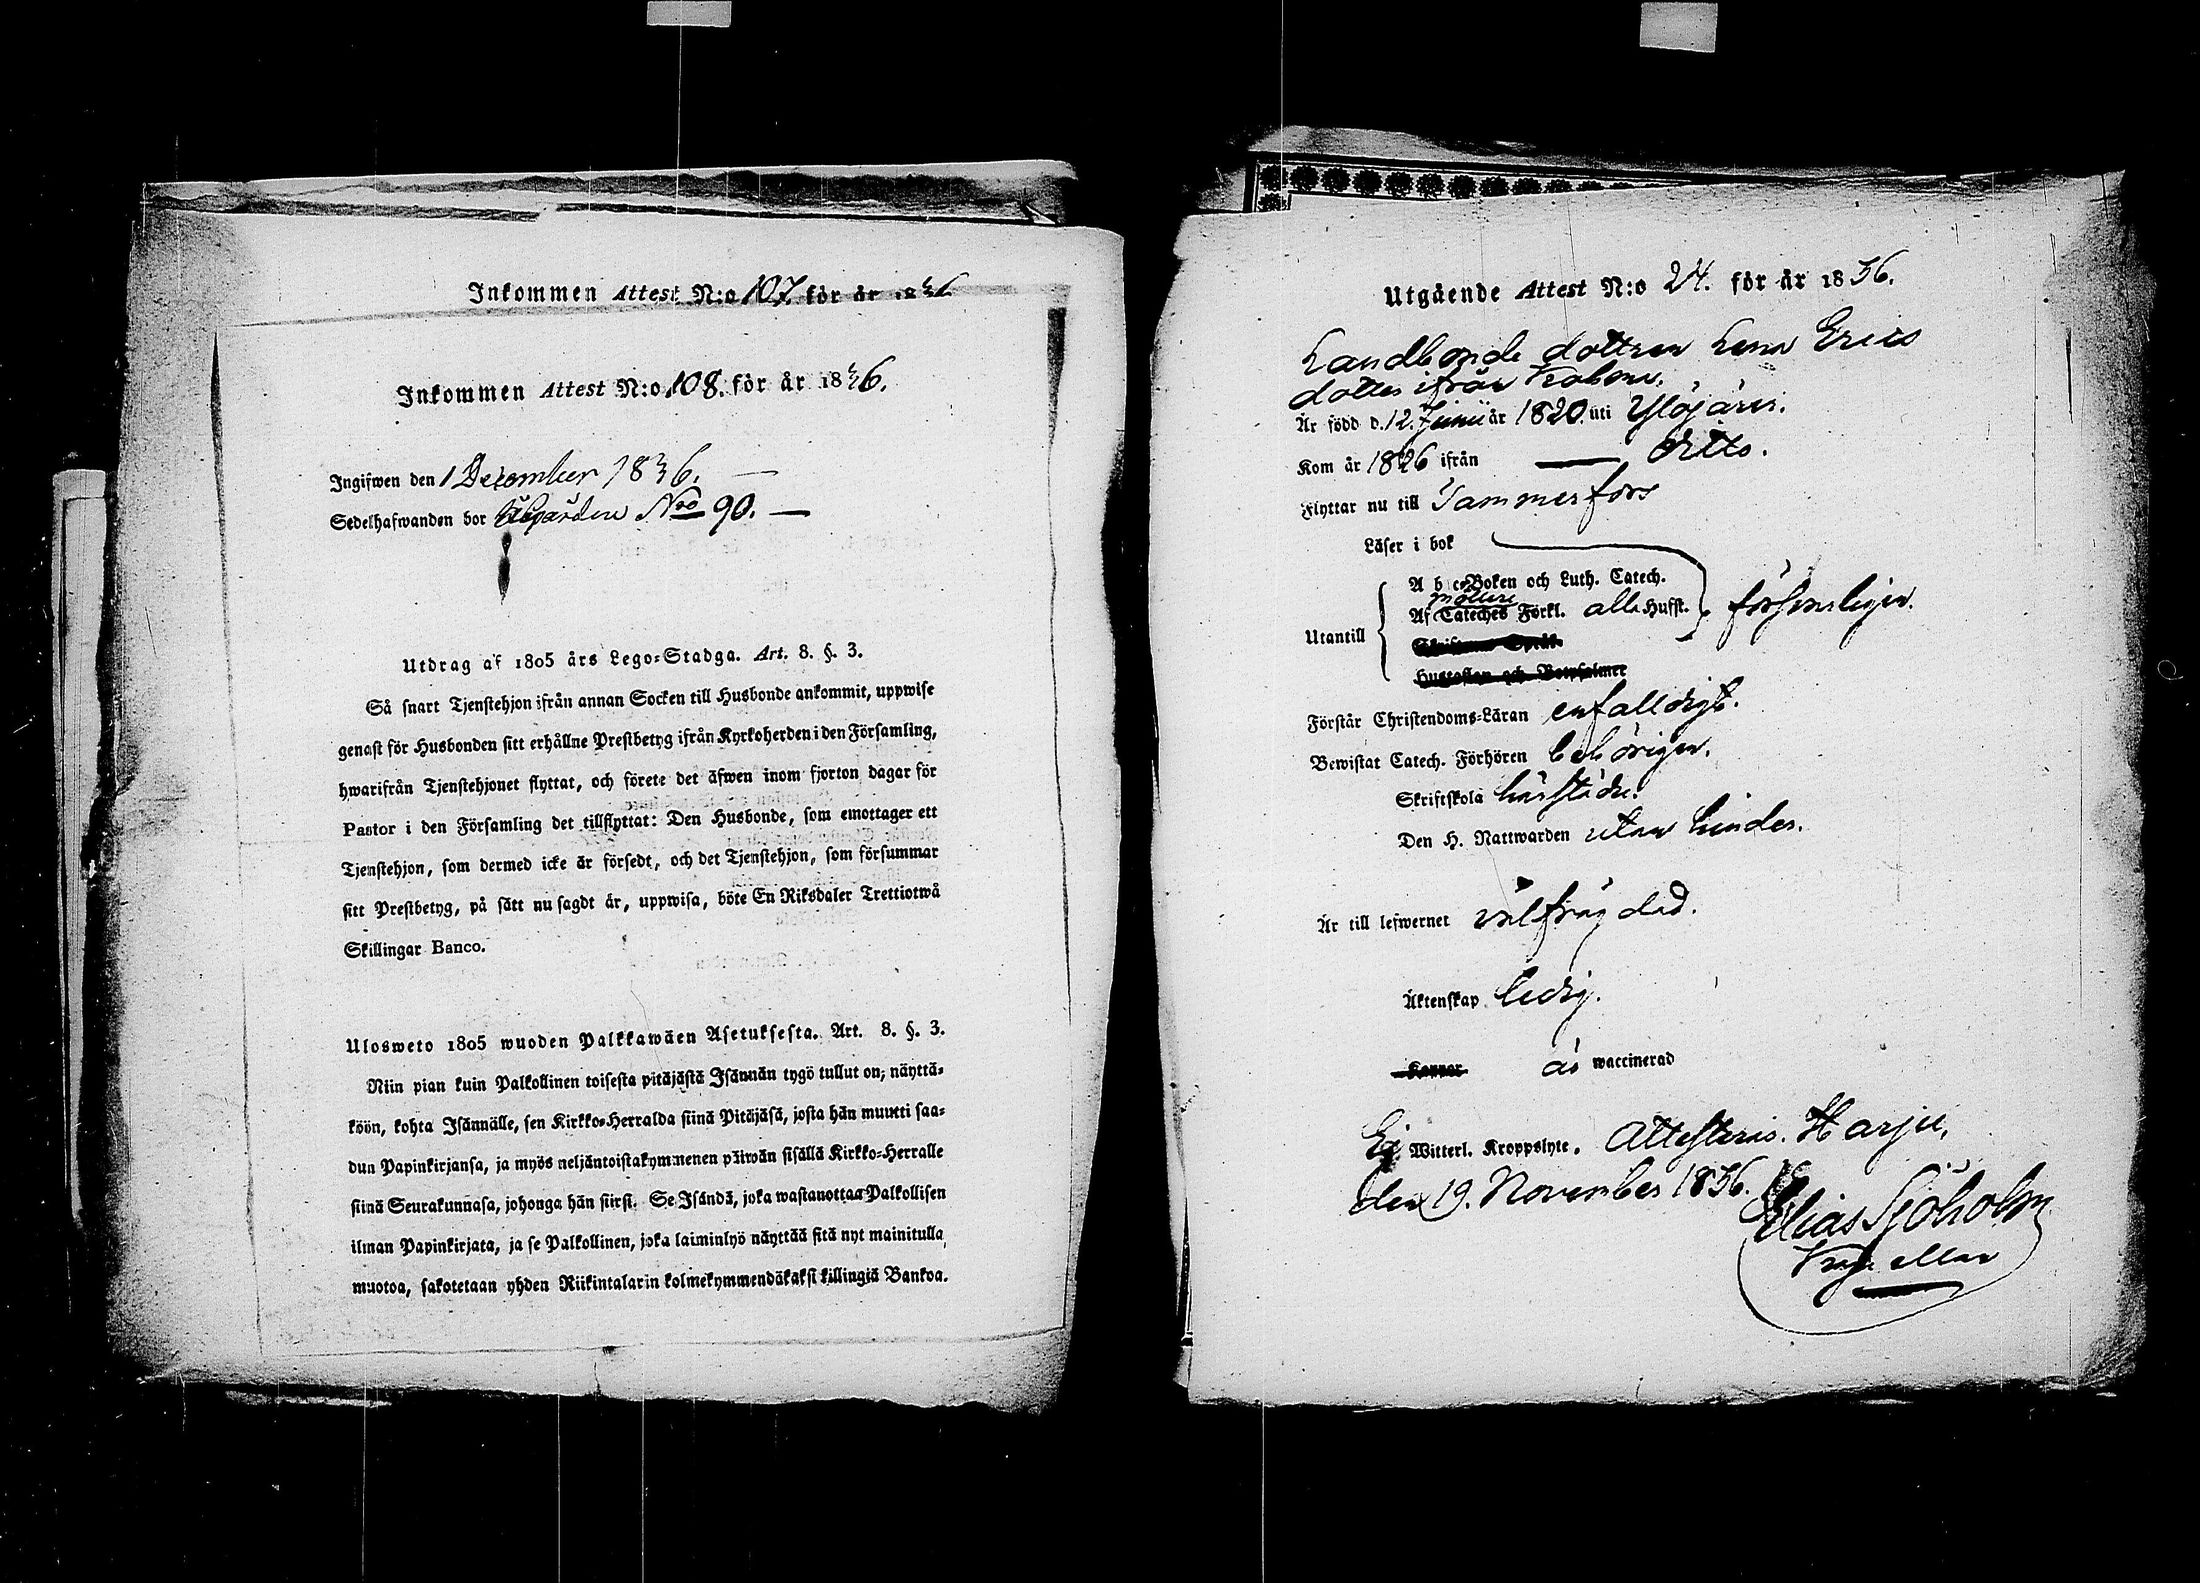 Inkommen Attest N:o 107 för år 1836
Inkommen Attest N:o 108. för år 1836.
Ingifwen den 1 December 1836. —
Sedelhafwanden bor Nro 90. —
Utdrag af 1805 års Lego-Stadga. Art. 8. §. 3.
Så snart Tjenstehjon ifrån annan Socken till Husbonde ankommit, uppwise
genast för Husbonden sitt erhållne Prestbetyg ifrån Kyrkoherden i den Församling,
hwarifrån Tjenstehjonet flyttat, och förete det äfwen inom fjorton dagar för
Pastor i den Församling det tillflyttat: Den Husbonde, som emottager ett
Tjenstehjon, som dermed icke är försedt, och det Tjenstehjon, som försummar
sitt Prestbetyg, på sätt nu sagdt är, uppwisa, böte En Riksdaler Trettiotwå
Skillingar Banco.
Ulosweto 1805 wuoden Palkkawäen Asetuksesta. Art. 8. §. 3.
Niin pian kuin Palkollinen toisesta pitäjästä Isännän tygö tullut on; näyttä-
köön, kohta Isännälle, sen Kirkko-Herralda siinä Pitäjäsä, josta hän muutti saa-
dun Papinkirjansa, ja myös neljäntoistakymmenen päiwän sisällä Kirkko-Herralle
siinä Seurakunnasa, johonga hän siirsi. Se Isändä, joka wastanottaa Palkollisen
ilman Papinkirjata, ja se Palkollinen, joka laiminlyö näyttää sitä nyt mainitulla
muotoa, sakotetaan yhden Riikintalarin kolmekymmendäkaksi killingiä Bankoa.
Utgående Attest N:o 24. för år 1836.
Landbonde dottren Lena Erics
dotter ifrån
Är född d. 12. Junii år 1820. uti Ylöjärvi.
Kom år 1826 ifrån — Ditto.
Flyttar nu till Tammerfors
Läser i bok
A b c-Boken och Luth. Catech.
Utantill Af Cateches Förkl. alla Husst. försvarligen.
Förstår Christendoms-Läran enfalldigt.
Bewistat Catech. Förhören behörigen.
Skriftskola härstädes.
Den H. Nattwarden utan hinder.
Är till lefwernet välfrägdad.
Äktenskap ledig.
är waccinerad
Ej Witterl. Kroppslyte. Attesteras. Harju,
den 19. November 1836.
Elias Sjöholm